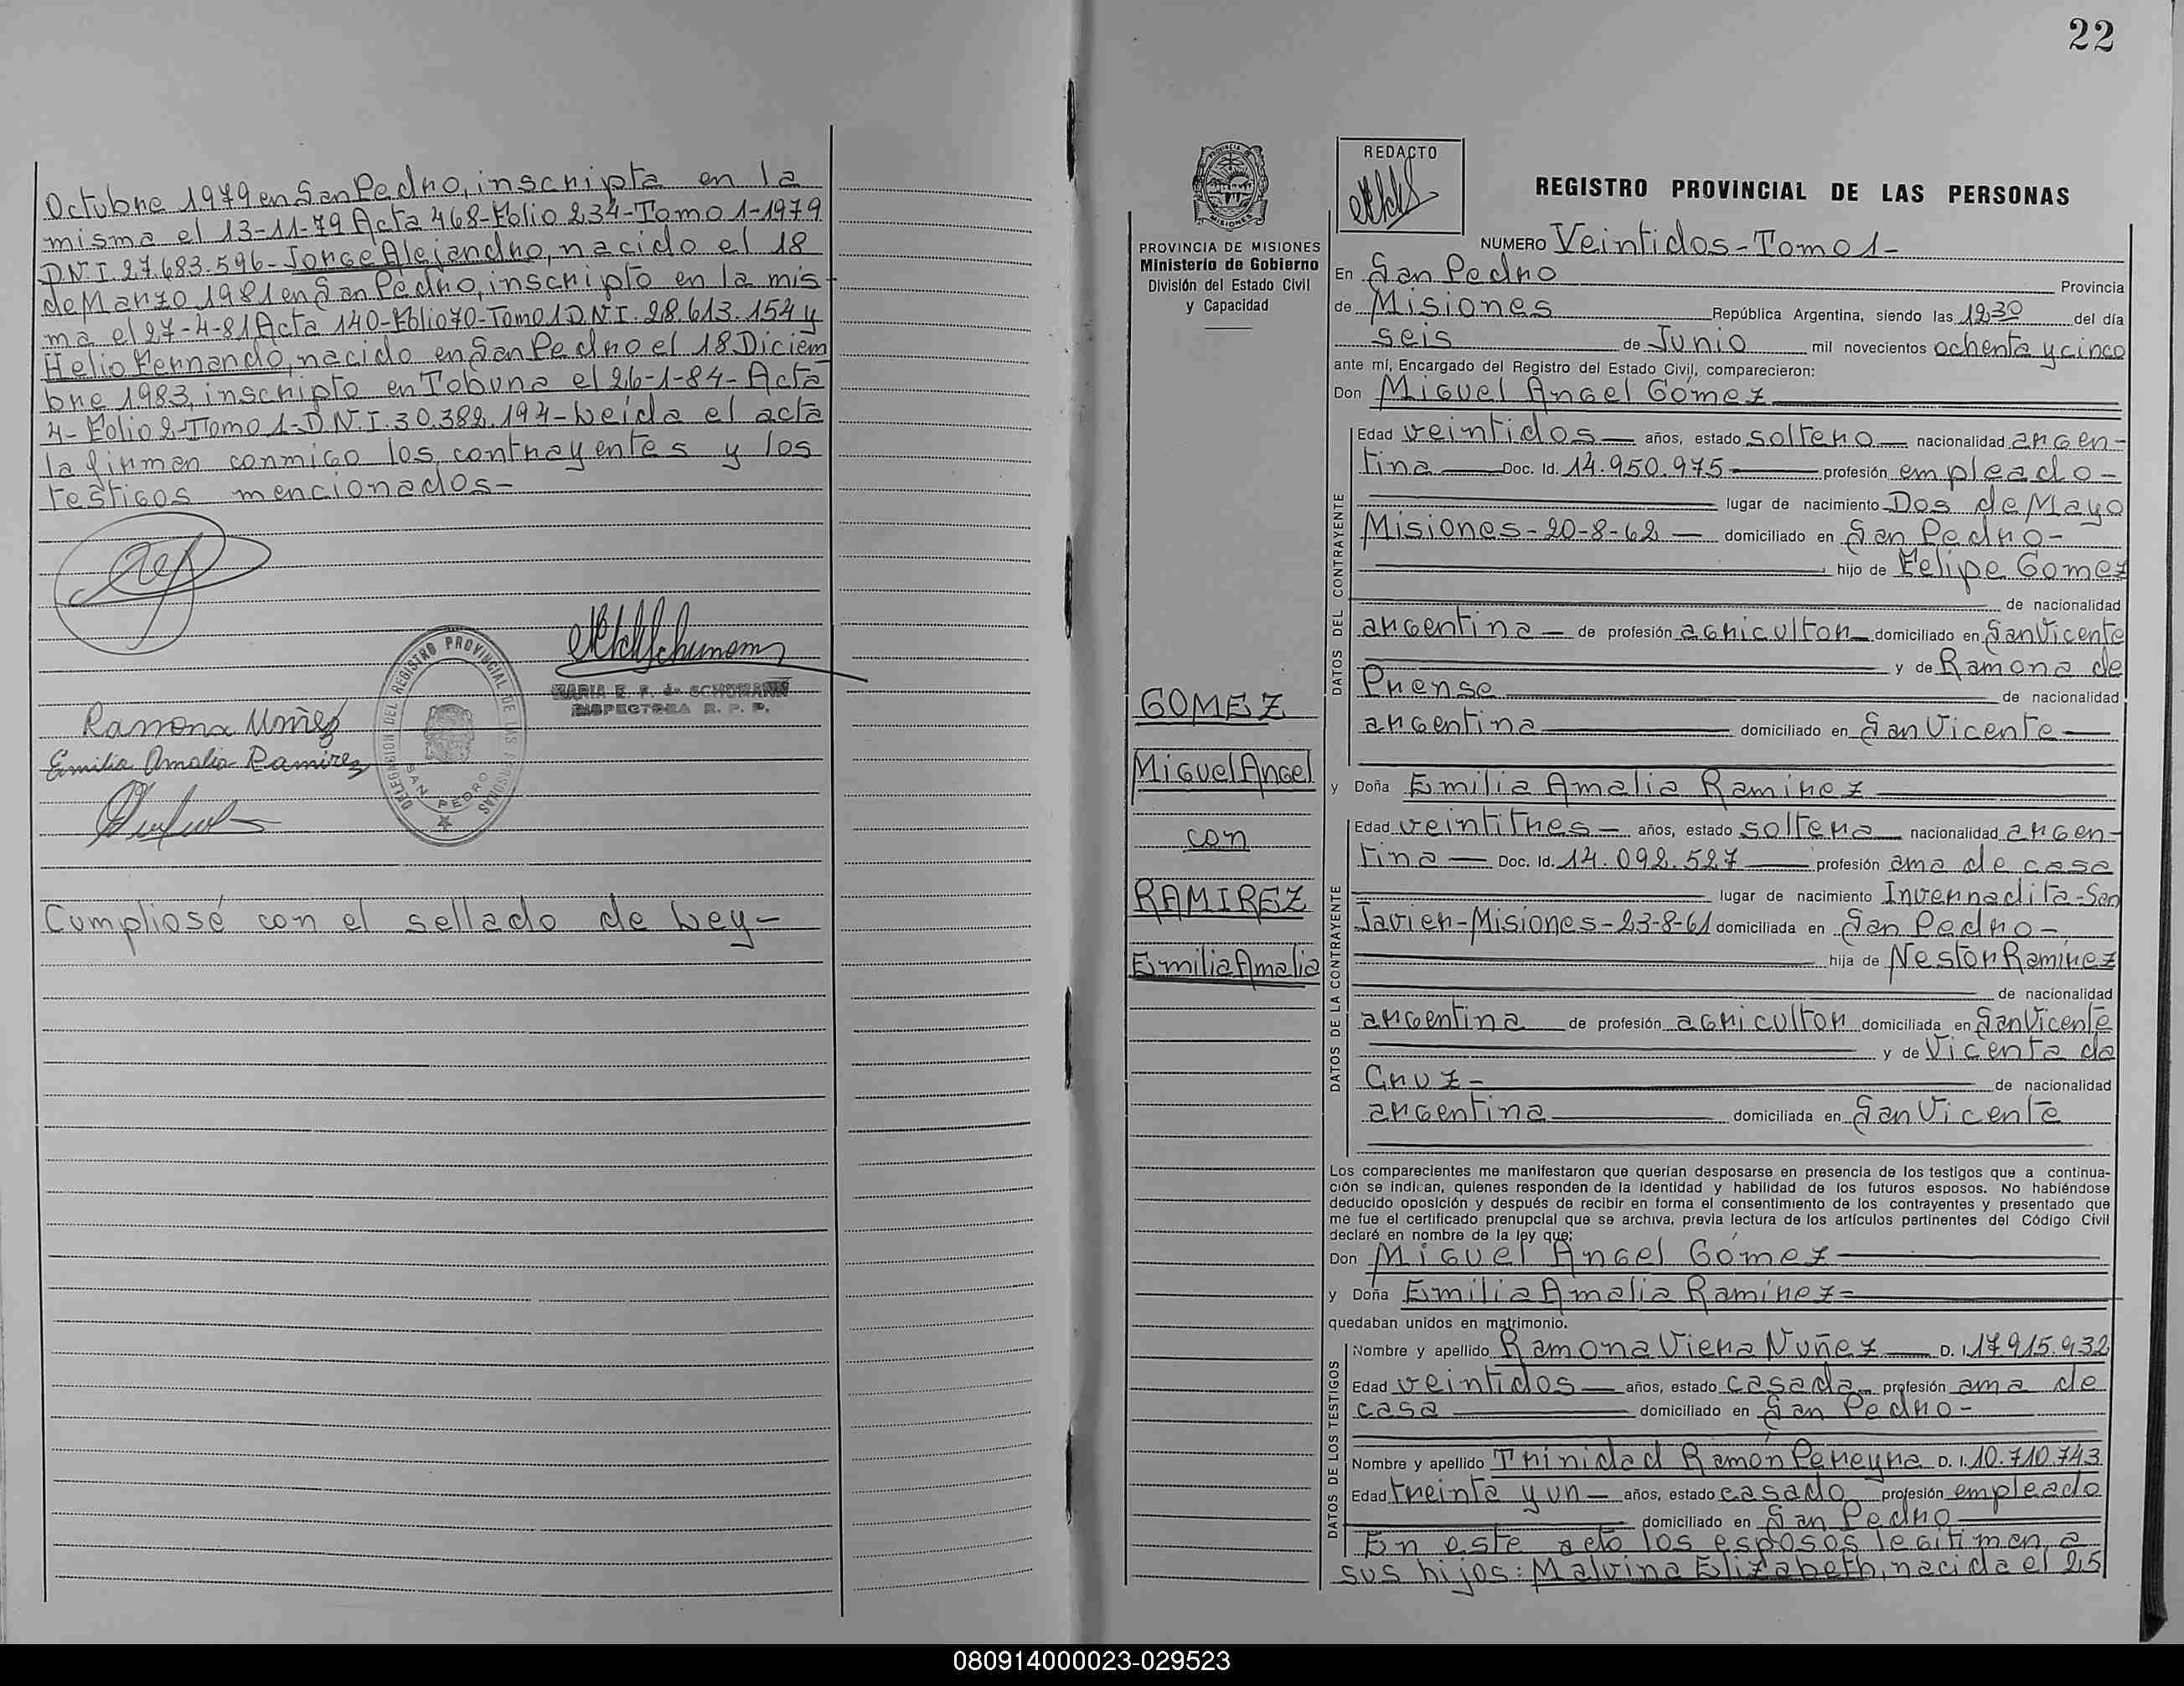 Octubre 1979 en San Pedro, inscripta en la
misma el 13-11-79 Acta 468-Folio 234-Tomo 1-1979
D.N.I. 27.683.596- Jorge Alejandro, nacido el 18
de Marzo 1981 en San Pedro, inscripto en la mis-
ma el 27-4-81 Acta 140-Folio 70-Tomo 1 D.N.I. 28.613.154 y
Helio Fernando, nacido en San Pedro el 18 Diciem
bre 1983, inscripto en Tobuna el 26-1-84- Acta
4- Folio 2-Tomo 1-D.N.I. 30.382.194- Leída el acta
la firman conmigo los contrayentes y los
testigos mencionados-
DELEGACION DEL REGISTRO PROVINCIAL DE LAS PERSONAS
SAN PEDRO
MARIA E. F. de SCHUMANN
INSPECTORA R. P. P.
Ramona Uñez
Emilia Amalia Ramirez
Cumpliosé con el sellado de Ley-
22
PROVINCIA DE MISIONES
Ministerio de Gobierno
División del Estado Civil
y Capacidad
GOMEZ
Miguel Angel
con
RAMIREZ
Emilia Amalia
REDACTO
REGISTRO PROVINCIAL DE LAS PERSONAS
NUMERO Veintidos-Tomo 1-
En San Pedro Provincia
de Misiones República Argentina, siendo las 1230 del día
seis de Junio mil novecientos ochenta y cinco
ante mí, Encargado del Registro del Estado Civil, comparecieron:
Don Miguel Angel Gómez
DATOS DEL CONTRAYENTE
Edad veintidos años, estado soltero nacionalidad argen-
tina Doc. Id. 14.950.975 profesión empleado-
lugar de nacimiento Dos de Mayo
Misiones-20-8-62 domiciliado en San Pedro-
hijo de Felipe Gomez
de nacionalidad
argentina de profesión agricultor domiciliado en San Vicente
y de Ramona de
Prense de nacionalidad
argentina domiciliado en San Vicente
y Doña Emilia Amalia Ramírez
DATOS DE LA CONTRAYENTE
Edad veintitres años, estado soltera nacionalidad argen-
tina Doc. Id. 14.092.527 profesión ama de casa
lugar de nacimiento Invernadita-San
Javier-Misiones-23-8-61 domiciliada en San Pedro-
hija de Nestor Ramírez
de nacionalidad
argentina de profesión agricultor domiciliada en San Vicente
y de Vicenta da
Cruz- de nacionalidad
argentina domiciliada en San Vicente
Los comparecientes me manifestaron que querían desposarse en presencia de los testigos que a continua-
ción se indican, quienes responden de la identidad y habilidad de los futuros esposos. No habiéndose
deducido oposición y después de recibir en forma el consentimiento de los contrayentes y presentado que
me fue el certificado prenupcial que se archiva, previa lectura de los artículos pertinentes del Código Civil
declaré en nombre de la ley que:
Don Miguel Angel Gómez
y Doña Emilia Amalia Ramírez-
quedaban unidos en matrimonio.
DATOS DE LOS TESTIGOS
Nombre y apellido Ramona Viera Nuñez D. I. 17.915.932
Edad veintidos años, estado casada profesión ama de
casa domiciliado en San Pedro-
Nombre y apellido Trinidad Ramón Pereyra D. I. 10.710.743
Edad treinta y un años, estado casado profesión empleado
domiciliado en San Pedro
En este acto los esposos legitiman a
sus hijos: Malvina Elizabeth, nacida el 25
080914000023-029523